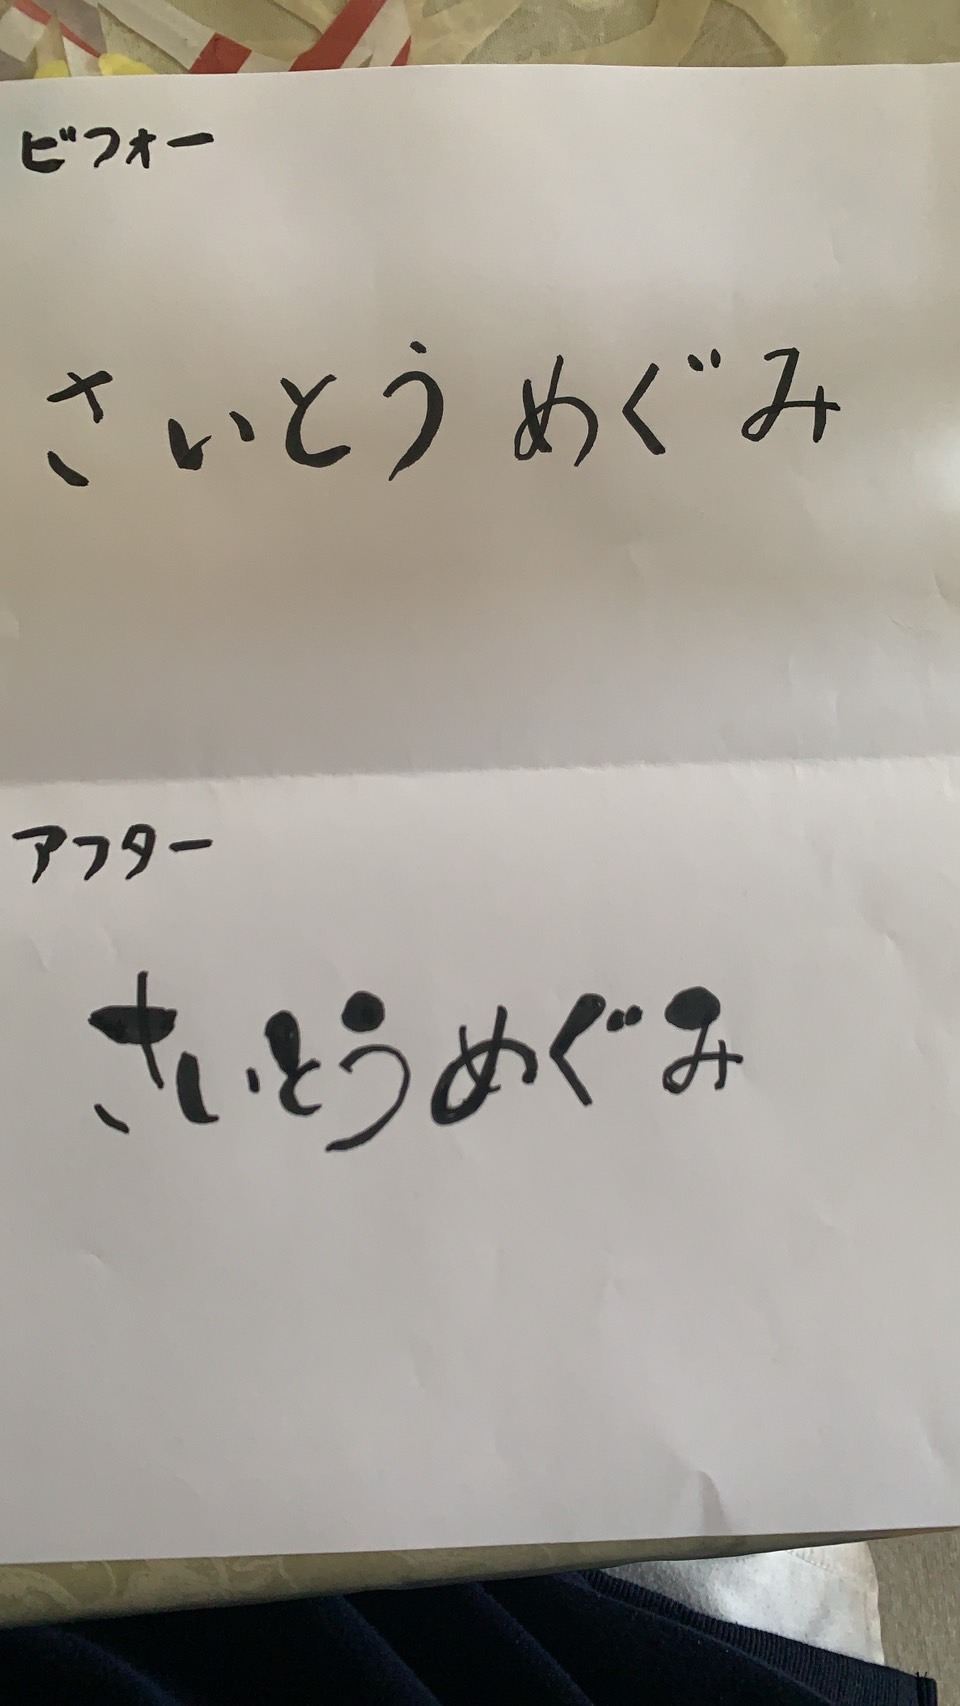 ビフォー
さいとうめぐみ
アフター
さいとうめぐみ